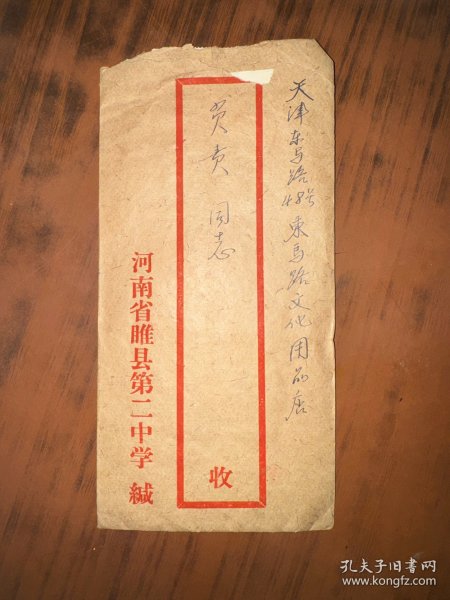 天津东马路
48号东马路文化用品店
负责 同志
收
河南省睢县第二中学 缄
孔夫子旧书网
www.kongfz.com